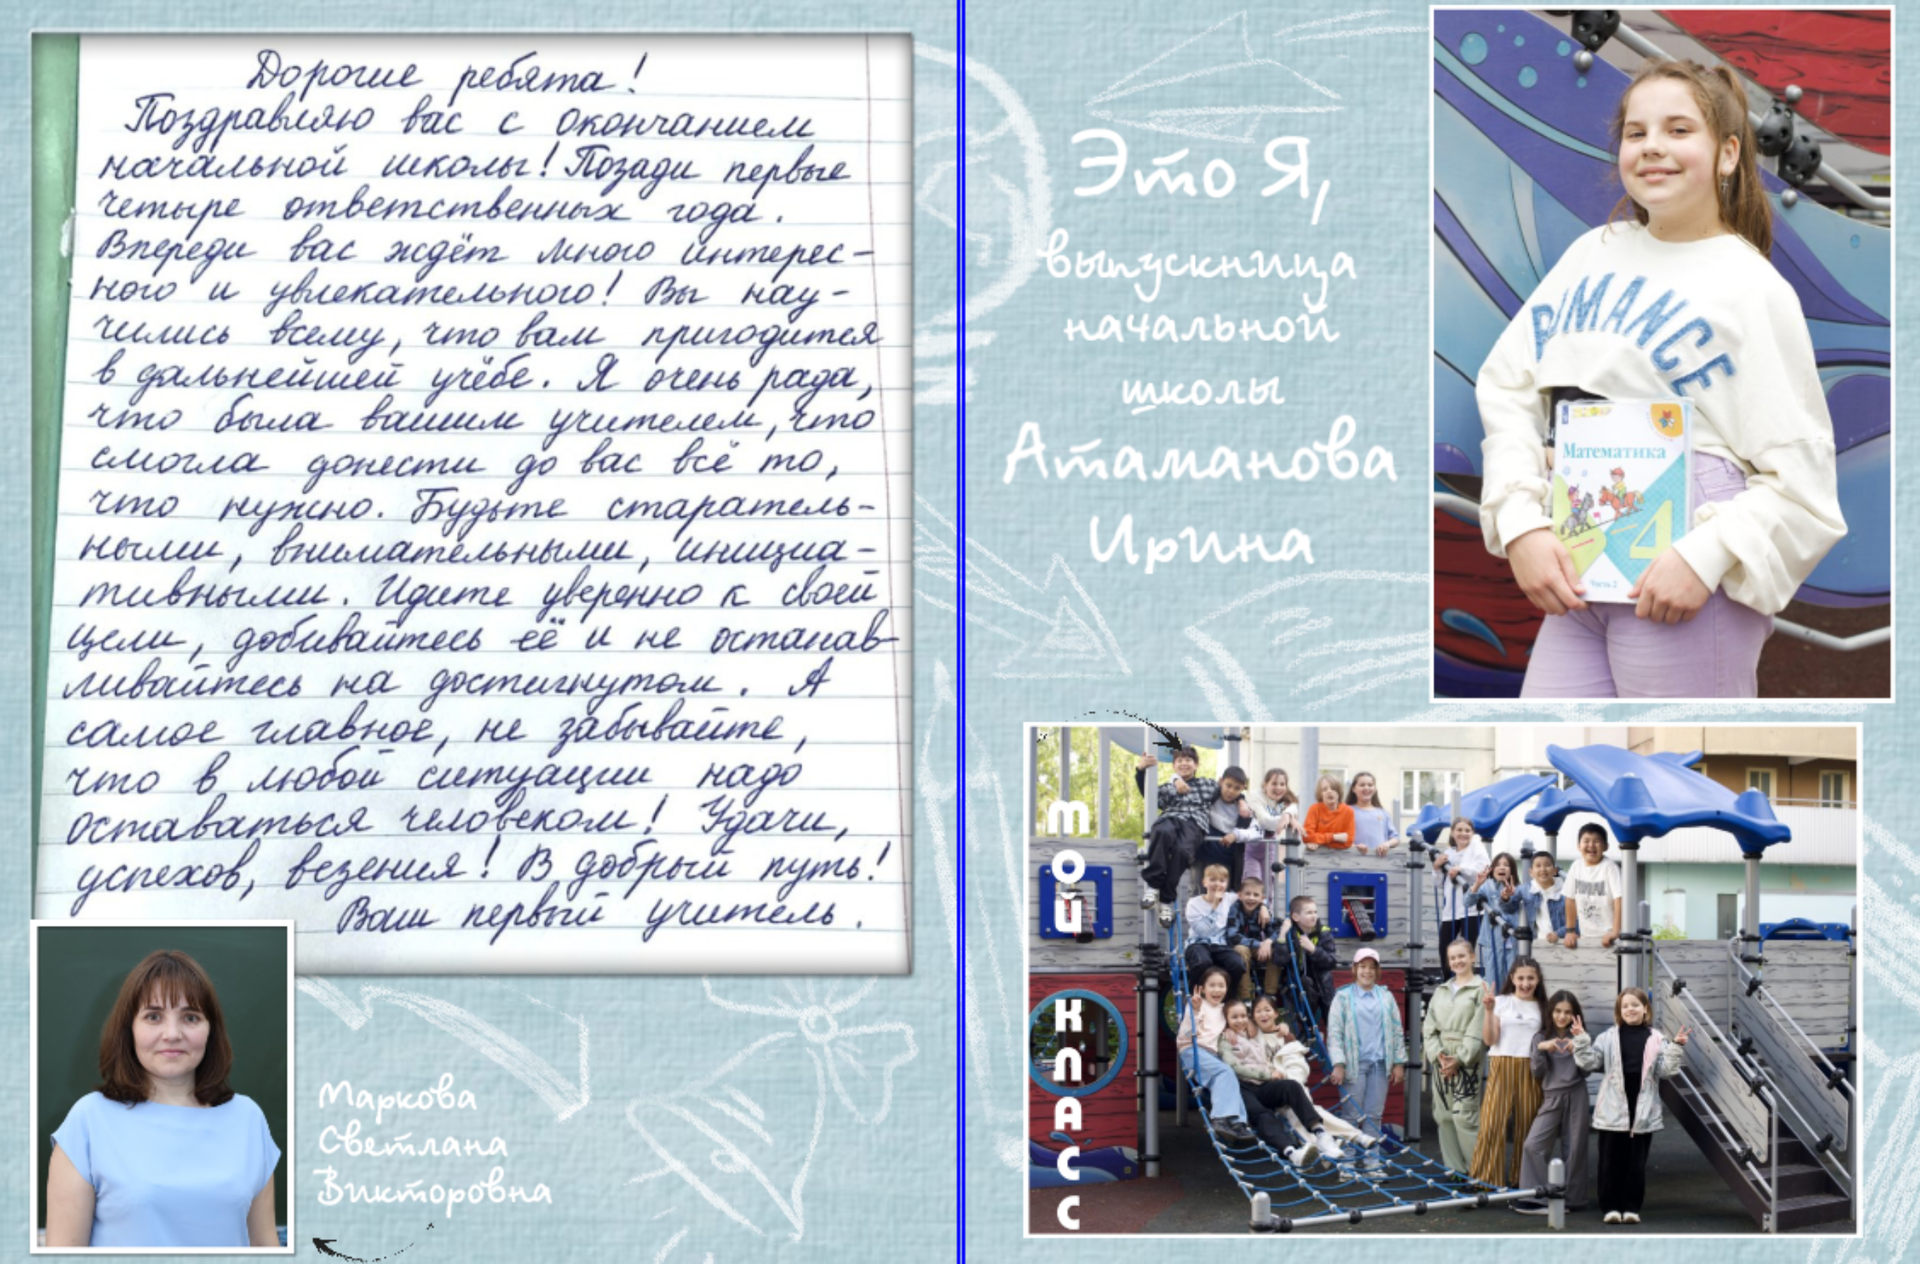 Дорогие ребята!
Поздравляю вас с окончанием
начальной школы! Позади первые
четыре ответственных года.
Впереди вас ждёт много интерес-
ного и увлекательного! Вы нау-
чились всему, что вам пригодится
в дальнейшей учёбе. Я очень рада,
что была вашим учителем, что
смогла донести до вас всё то,
что нужно. Будьте старатель-
ными, внимательными, инициа-
тивными. Идите уверенно к своей
цели, добивайтесь её и не останав-
ливайтесь на достигнутом. А
самое главное, не забывайте,
что в любой ситуации надо
оставаться человеком! Удачи,
успехов, везения! В добрый путь!
Ваш первый учитель.
Маркова
Светлана
Викторовна
Это Я,
выпускница
начальной
школы
Атаманова
Ирина
ROMANCE
Математика
4
Часть 2
мой
класс